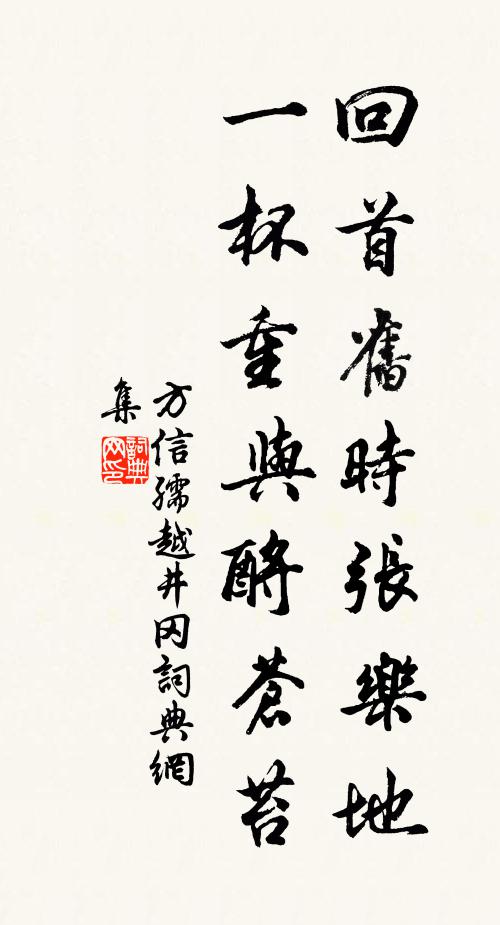 回首舊時張樂地
一杯重與酹蒼苔
方信孺越井岡詞典網
集
詞典
网印